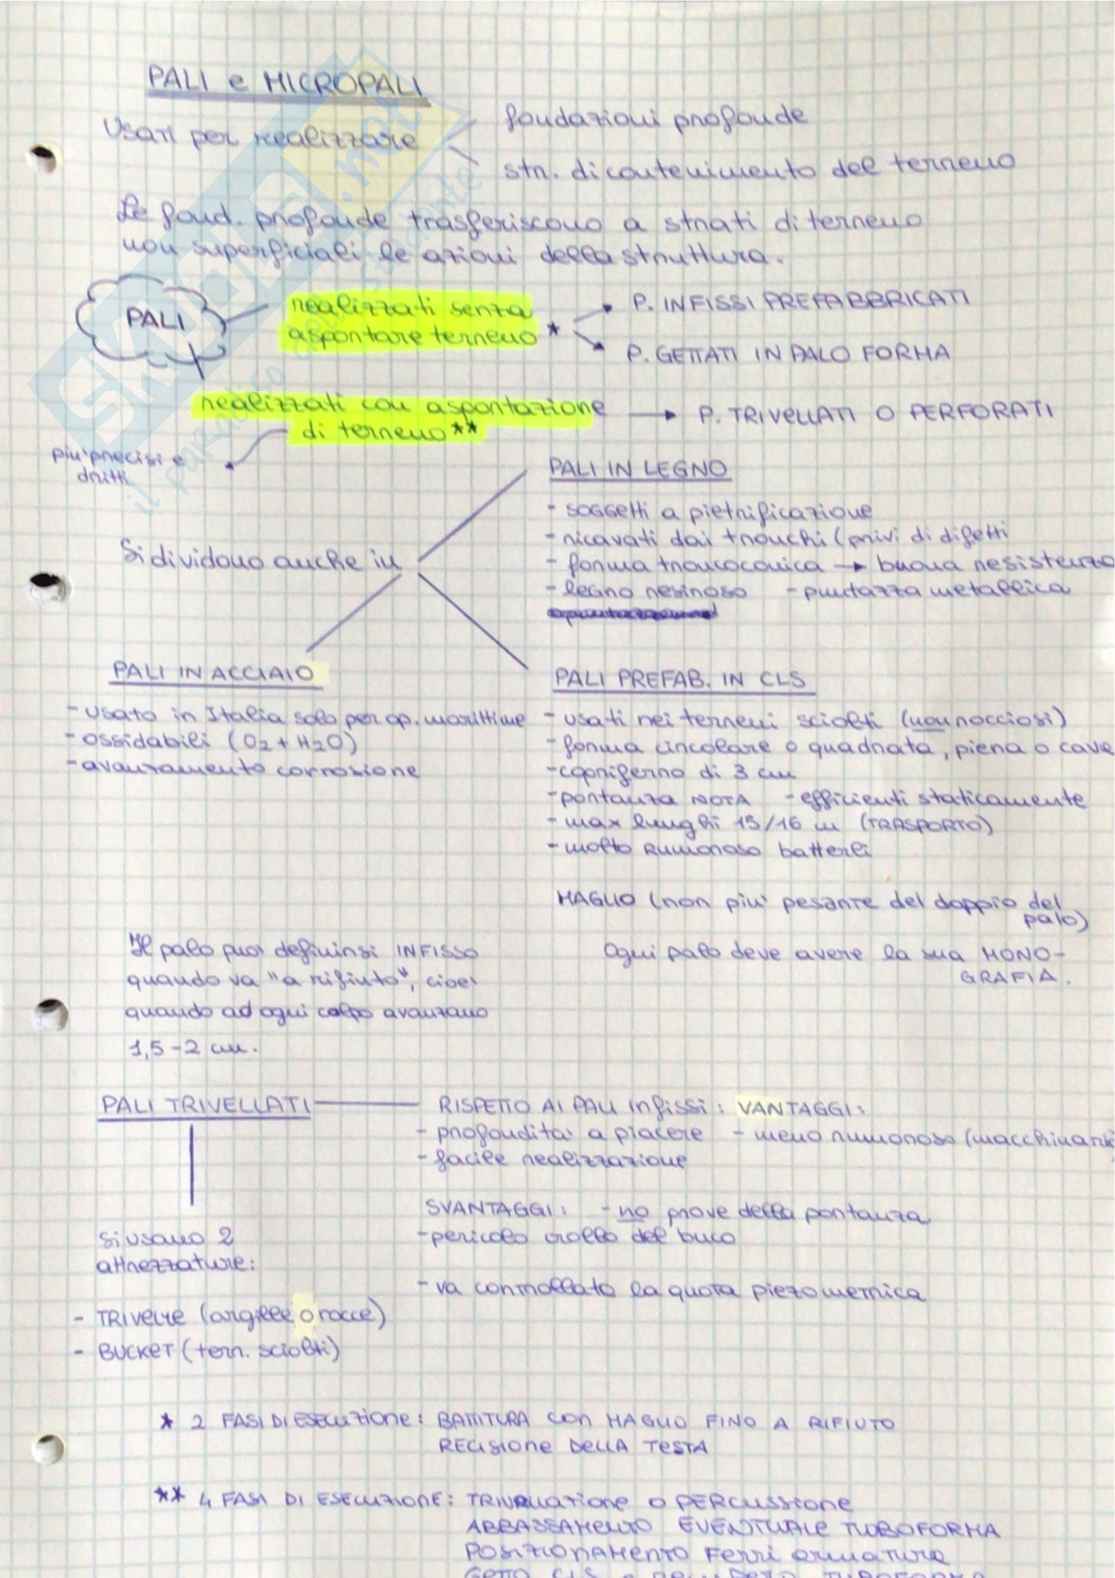 PALI e MICROPALI
Usati per realizzare
fondazioni profonde
str. di contenimento del terreno
Le fond. profonde trasferiscono a strati di terreno
non superficiali le azioni della struttura.
PALI
realizzati senza
asportare terreno *
P. INFISSI PREFABBRICATI
P. GETTATI IN PALO FORMA
realizzati con asportazione
di terreno **
→ P. TRIVELLATI O PERFORATI
piu' precisi e
dritti
Si dividono anche in
PALI IN LEGNO
- soggetti a pietrificazione
- ricavati dai tronchi (privi di difetti
- forma troncoconica → buona resistenza
- legno resinoso - puntazza metallica
PALI IN ACCIAIO
- usato in Italia solo per op. marittime
- ossidabili (O2 + H2O)
- avanzamento corrosione
PALI PREFAB. IN CLS
- usati nei terreni sciolti (non rocciosi)
- forma circolare o quadrata, piena o cave
- copriferro di 3 cm
- portanza NOTA - efficienti staticamente
- max lunghi 15/16 m (TRASPORTO)
- molto rumoroso batterli
MAGLIO (non piu' pesante del doppio del
palo)
Ogni palo deve avere la sua MONO-
GRAFIA.
Il palo puo' definirsi INFISSO
quando va "a rifiuto", cioe'
quando ad ogni colpo avanzano
1,5-2 cm.
PALI TRIVELLATI
RISPETTO AI PALI infissi: VANTAGGI:
- profondita' a piacere - meno rumoroso (macchinari
- facile realizzazione
SVANTAGGI: - no prove della portanza
- pericolo crollo del buco
- va controllato la quota piezometrica
Si usano 2
attrezzature:
- TRIVELLE (argille o rocce)
- BUCKET (terr. sciolti)
* 2 FASI DI ESECUZIONE: BATTITURA CON MAGLIO FINO A RIFIUTO
RECISIONE DELLA TESTA
** 4 FASI DI ESECUZIONE: TRIVELLAZIONE O PERCUSSIONE
ABBASSAMENTO EVENTUALE TUBOFORMA
POSIZIONAMENTO FERRI ARMATURA
GETTO CLS e
TUBOFORMA